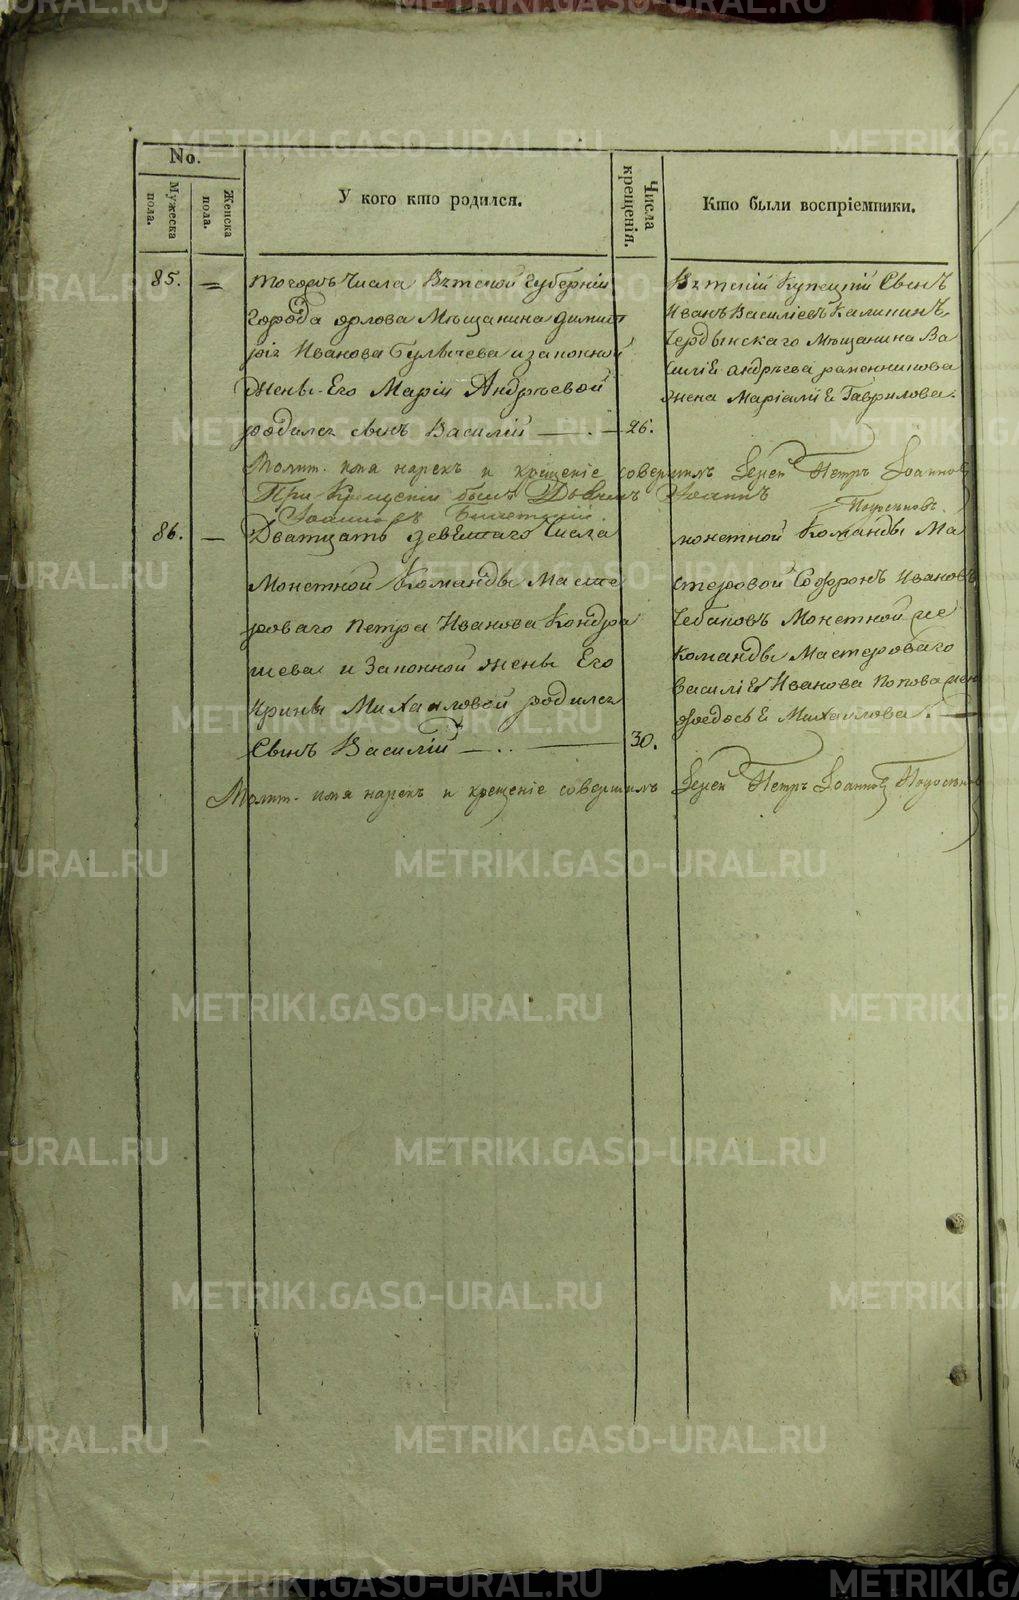 No.
Мужеска пола.
Женска пола.
У кого кто родился.
Числа крещенія.
Кто были воспріемники.
85. =
тогожъ Числа Вятской Губерніи
города орлова Мѣщанина дмит
рія Иванова Булычева и законной
Жены Его Маріи Андрѣевой
родился сынъ Василій — 26.
Вятскій Купецкій Сынъ
Иванъ Василіевъ Калининъ,
Чердынскаго Мѣщанина Ва
силіе андрѣева
жена Гаврилова.
Молит. имя нарекъ и крещеніе совершилъ Іерей Петръ Іоанновъ
При Крещеніи былъ Іоаннъ
86. —
Дватцать деветаго Числа
Монетной Команды Масте
роваго Петра Иванова Кондра
шева и Законной жены Его
Ирины Михаиловой родился
Сынъ Василій — 30.
монетной Команды Ма
стеровой Софронъ Ивановъ
Чебаковъ Монетной же
Команды Мастероваго
Василіе Иванова Попова жен
федосье Михаилова. —
Молит. имя нарекъ и крещеніе совершилъ Іерей Петръ Іоанновъ
METRIKI.GASO-URAL.RU